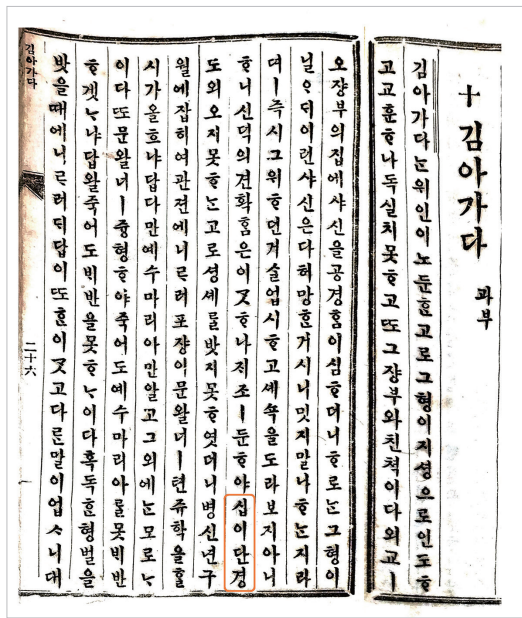 十 김아가다 과부
김아가다ᄂᆞᆫ 위인이 노둔ᄒᆞᆫ고로 그 형이 지셩으로 인도ᄒᆞ
고 교훈ᄒᆞ나 독실치 못ᄒᆞ고 ᄯᅩ 그 쟝부와 친쳑이 다 외고ㅣ
오 쟝부의 집에 샤신을 공경홈이 심ᄒᆞ더니 ᄒᆞ로ᄂᆞᆫ 그 형이
닐ᄋᆞ디 이런 샤신은 다 허망ᄒᆞᆫ 거시니 밋지 말나 ᄒᆞᄂᆞᆫ지라
뎌ㅣ 즉시 그 위ᄒᆞ던 거슬 업시ᄒᆞ고 셰쇽을 도라보지 아니
ᄒᆞ니 신덕의 견화홈은 이 ᄀᆞᆺᄒᆞ나 지조ㅣ 둔ᄒᆞ야 십이단경
도 외오지 못ᄒᆞᄂᆞᆫ고로 셩셰를 밧지 못ᄒᆞ엿더니 병신년 구
월에 잡히여 관젼에 니르러 포쟝이 문왈 너ㅣ 텬쥬학을 ᄒᆞᆯ
시가 올흐냐 답 다만 예수 마리아만 알고 그 외에ᄂᆞᆫ 모로ᄂᆞ
이다 ᄯᅩ 문왈 너ㅣ 즁형ᄒᆞ야 죽어도 예수 마리아ᄅᆞᆯ 못 ᄇᆡ반
ᄒᆞ겟ᄂᆞ냐 답왈 죽어도 ᄇᆡ반을 못ᄒᆞᄂᆞ이다 혹독ᄒᆞᆫ 형벌을
밧을 때에 니르러 ᄃᆡ답이 ᄯᅩᄒᆞᆫ 이 ᄀᆞᆺ고 다른 말이 업ᄉᆞ니 대
김아가다
二十六